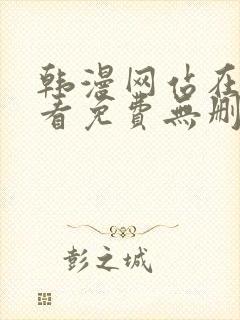 韩漫网佔在
看免費無删
彭之城